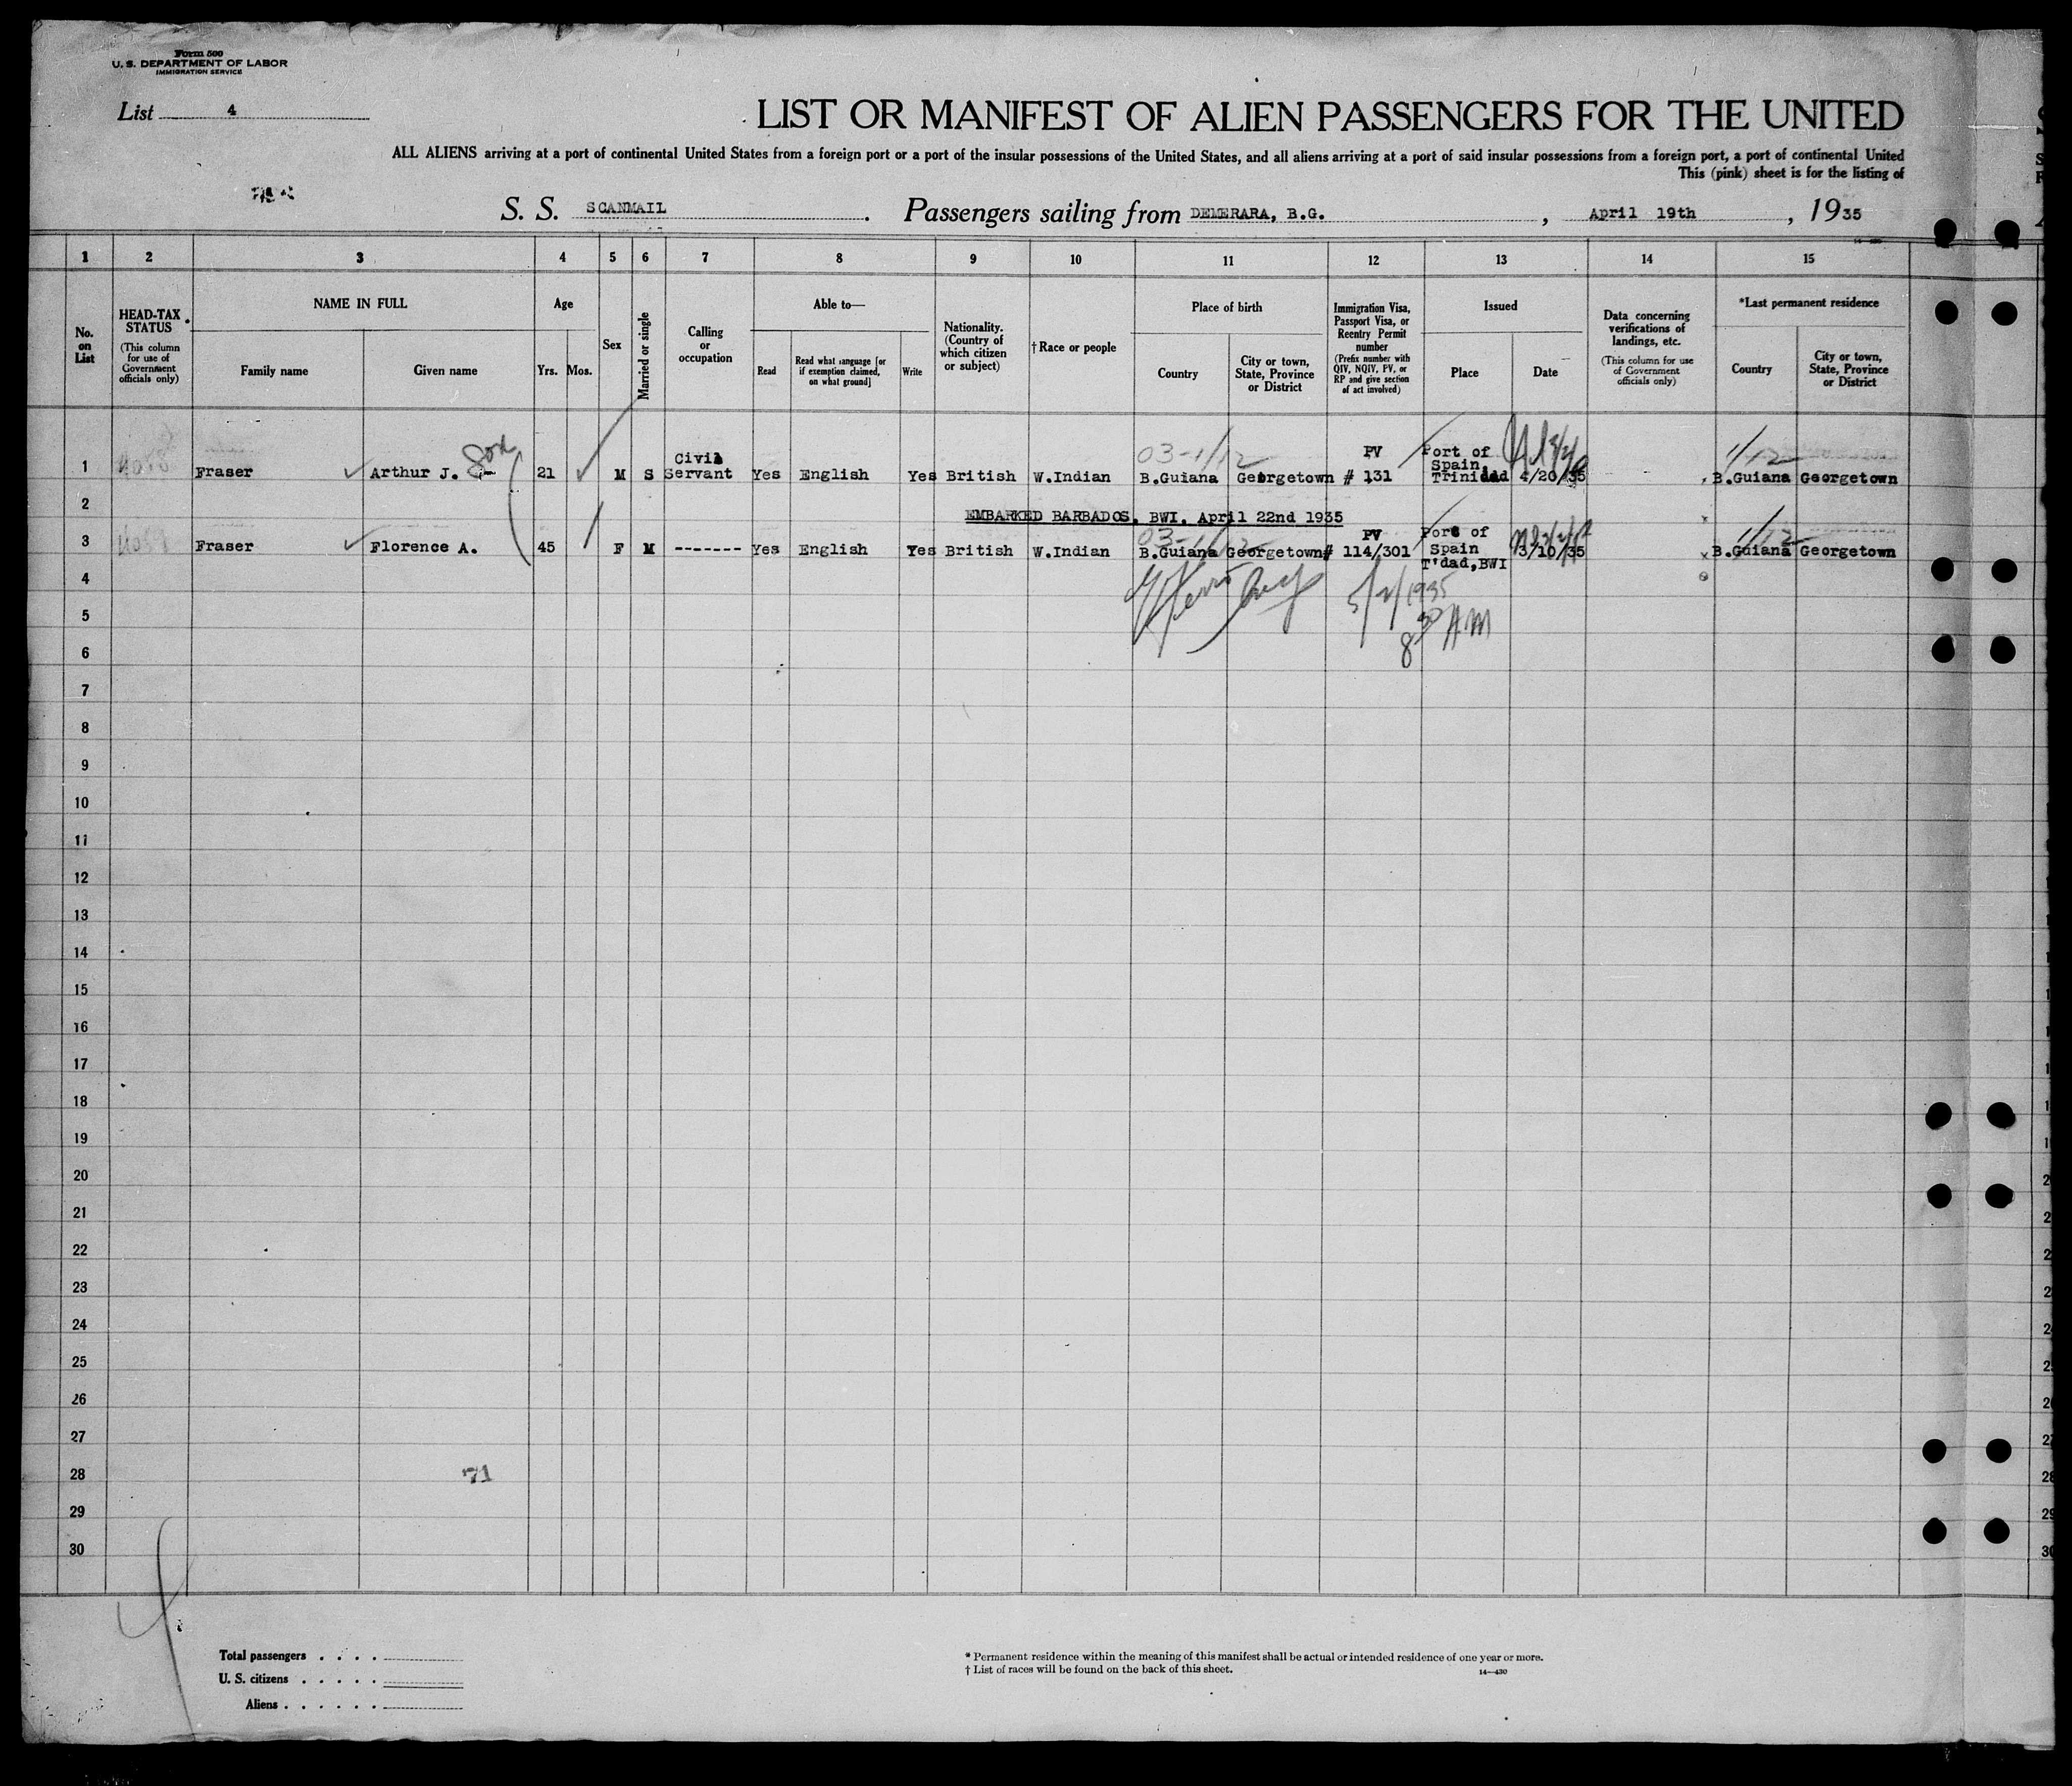 Form 500
U. S. DEPARTMENT OF LABOR
IMMIGRATION SERVICE
List 4
LIST OR MANIFEST OF ALIEN PASSENGERS FOR THE UNITED
ALL ALIENS arriving at a port of continental United States from a foreign port or a port of the insular possessions of the United States, and all aliens arriving at a port of said insular possessions from a foreign port, a port of continental United
This (pink) sheet is for the listing of
S. S. SCANMAIL. Passengers sailing from DEMERARA, B.G., April 19th, 1935
1 2 3 4 5 6 7 8 9 10 11 12 13 14 15
No. on List
HEAD-TAX STATUS
(This column for use of Government officials only)
NAME IN FULL
Family name
Given name
Age
Yrs. Mos.
Sex
Married or single
Calling or occupation
Able to—
Read
Read what language [or if exemption claimed, on what ground]
Write
Nationality. (Country of which citizen or subject)
† Race or people
Place of birth
Country
City or town, State, Province or District
Immigration Visa, Passport Visa, or Reentry Permit number
(Prefix number with QIV, NQIV, PV, or RP and give section of act involved)
Issued
Place
Date
Data concerning verifications of landings, etc.
(This column for use of Government officials only)
*Last permanent residence
Country
City or town, State, Province or District
03-1/12
1 Fraser Arthur J. Son 21 M S Civil Servant Yes English Yes British W.Indian B.Guiana Georgetown PV # 131 Port of Spain, Trinidad 4/20/35 B.Guiana Georgetown
2 EMBARKED BARBADOS, BWI. April 22nd 1935
03-1/12
3 Fraser Florence A. 45 F M ------- Yes English Yes British W.Indian B.Guiana Georgetown PV # 114/301 Port of Spain T'dad,BWI 3/10/35 B.Guiana Georgetown
4
5/2/1935
5
8 30 AM
6
7
8
9
10
11
12
13
14
15
16
17
18
19
20
21
22
23
24
25
26
27
28 71
29
30
Total passengers . . . .
U. S. citizens . . . . .
Aliens . . . . . .
* Permanent residence within the meaning of this manifest shall be actual or intended residence of one year or more.
† List of races will be found on the back of this sheet.
14—430